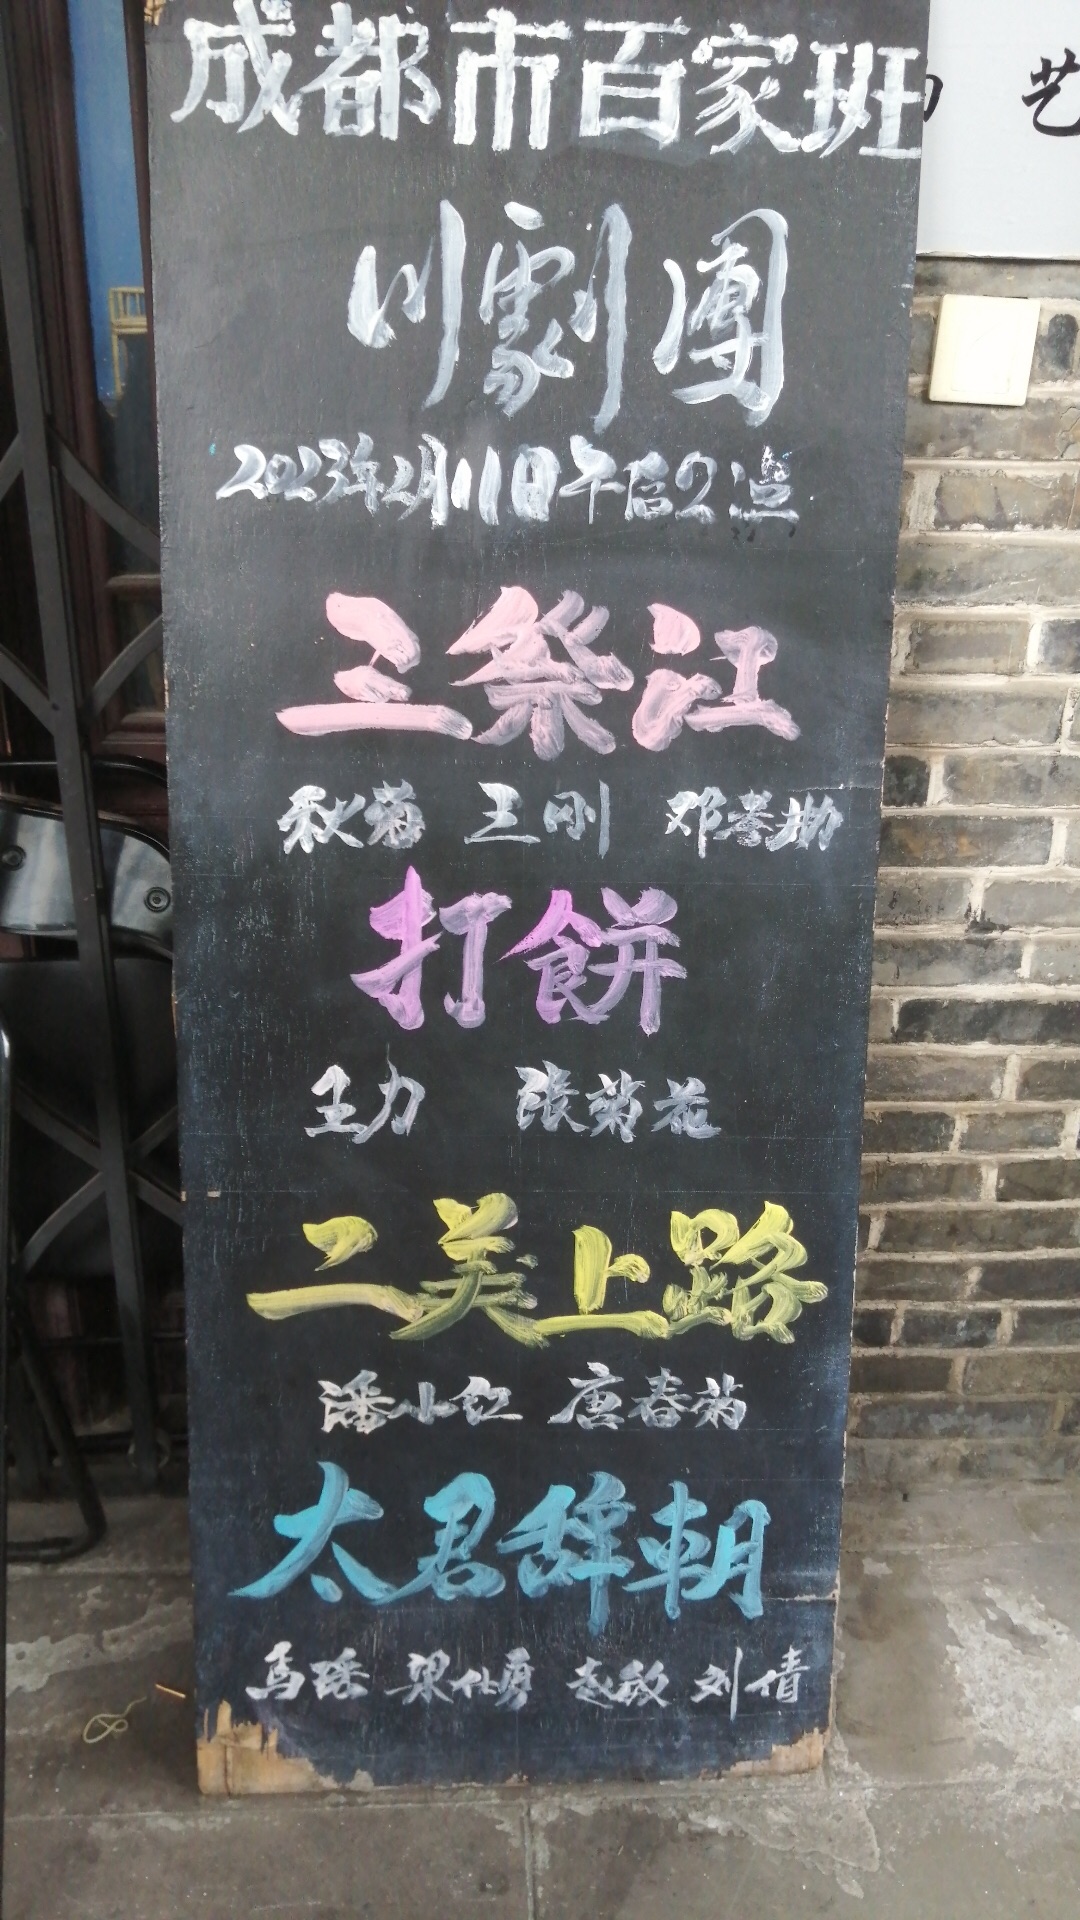 成都市百家班
川劇團
2023年2月11日午后2点
三祭江
秋菊 王刚 邓孝勤
打餅
王力 張菊花
二美上路
潘小红 唐春菊
太君辞朝
馬瑶 梁仕勇 赵敏 刘倩
艺